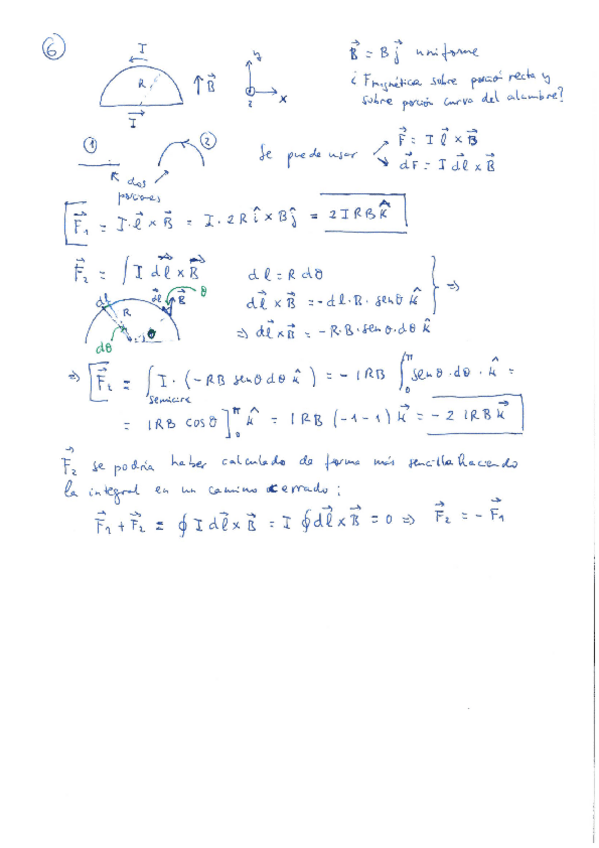 6
I
R
I
B⃗
y
x
z
B⃗ = B j⃗ uniforme
¿ F magnética sobre porción recta y
sobre porción curva del alambre?
1
2
dos
porciones
Se puede usar
F⃗ = I l⃗ × B⃗
d⃗F = I d⃗l × B⃗
F⃗₁ = I · l⃗ × B⃗ = I · 2R î × B ĵ = 2IRB k̂
F⃗₂ = ∫ I d⃗l × B⃗
dl = R dθ
dl
R
dθ
θ
d⃗l
B⃗
θ
d⃗l × B⃗ = -dl · B · senθ k̂
⇒ d⃗l × B⃗ = -R · B · senθ · dθ k̂
⇒
⇒ F⃗₂ = ∫ semicirc I · (-RB senθ dθ k̂) = - IRB ∫₀^π senθ · dθ · k̂ =
= IRB cosθ ]₀^π k̂ = IRB (-1-1) k⃗ = -2 IRB k⃗
F⃗₂ se podría haber calculado de forma más sencilla haciendo
la integral en un camino cerrado:
F⃗₁ + F⃗₂ = ∮ I d⃗l × B⃗ = I ∮ d⃗l × B⃗ = 0 ⇒ F⃗₂ = - F⃗₁